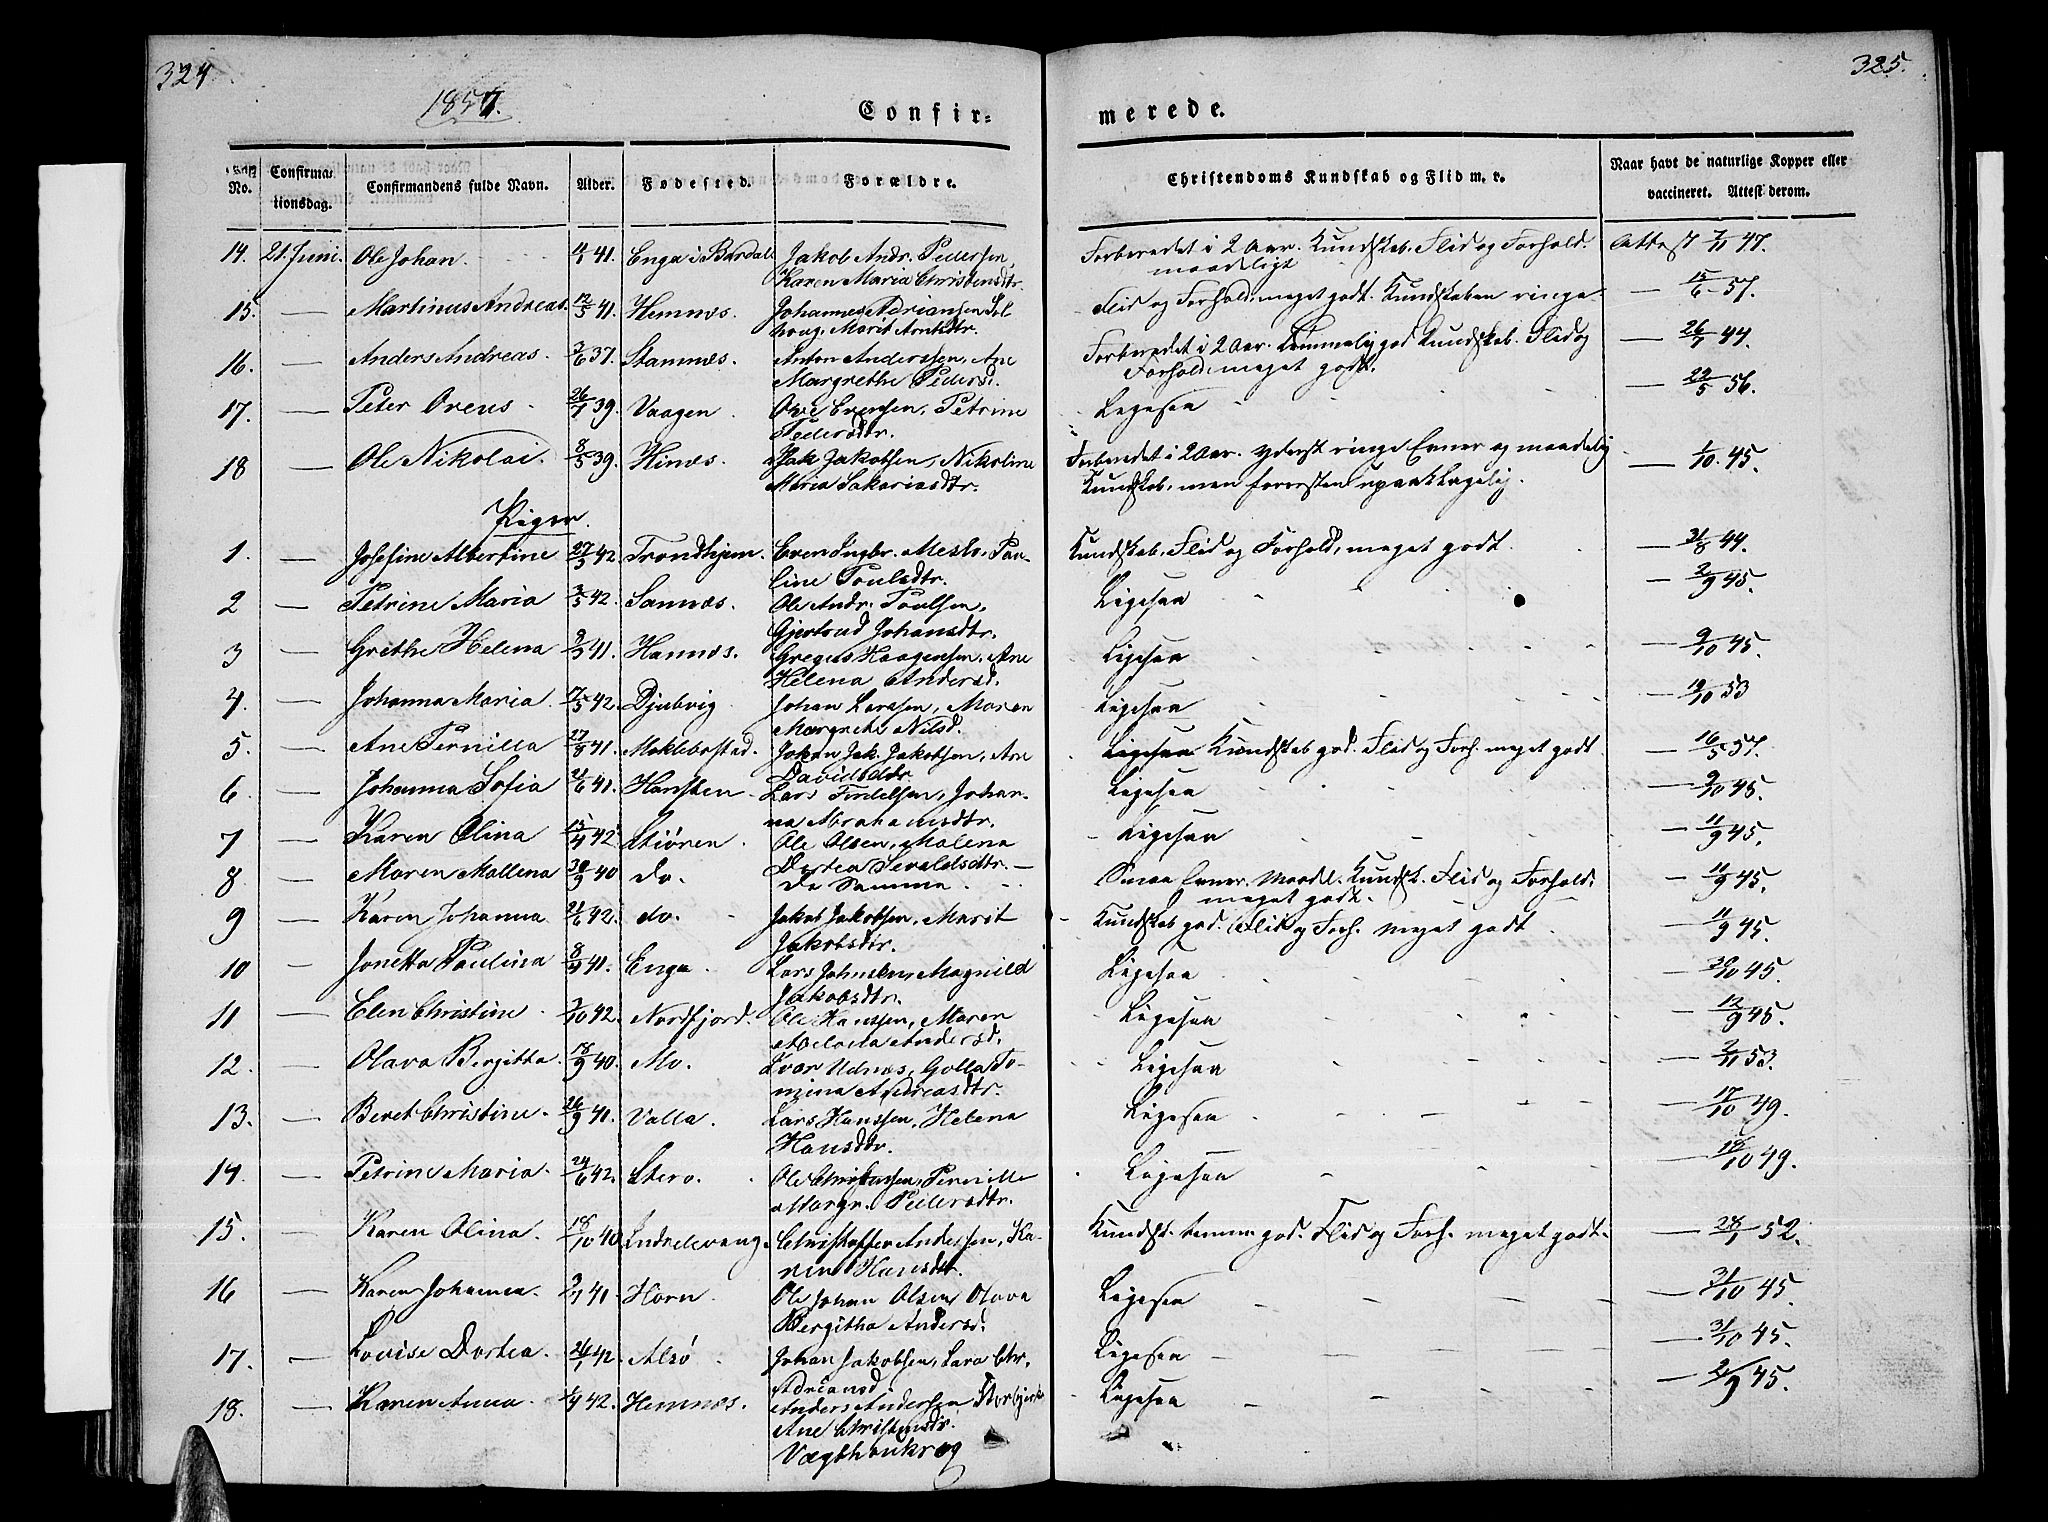 324
325.
1857.
Confir=
merede.
No.
Confirma=
tionsdag.
Confirmandens fulde Navn.
Alder.
Fødested.
Forældre.
Christendoms Kundskab og Flid m. v.
Naar havt de naturlige Kopper eller
vaccineret. Attest derom.
14. 21. Juni. Ole Johan. 41. Enga i Bardall Jakob Andr. Pedersen, Forberedet i 2 Aar. Kundskab, Flid og Forhold Attest 7/11 47.
Karen Maria Christensdtr. maadeligt
15. — Martinus Andreas. 12/5 41. Hemnæs. Johannes Adriansen Sol Flid og Forhold meget godt. Kundskaben ringe. — 15/6 57.
Marit Arntsdtr.
16. — Anders Andreas. 37. Stamnæs. Anton Anderssen, Ane Forberedet i 2 Aar. temmelig god Kundskab. Flid og — 44.
Margrethe Pedersd. Forhold, meget godt.
17. — Peter Oreus. 39. Vaagen. Ove Evensen, Petrine Ligesaa — 29/5 56.
Pedersdtr.
18 — Ole Nikolai. 8/5 39. Hinæs. Isak Jakobsen, Nikoline Forberedet i 2 Aar. yderst ringe Evner og maadelig — 1/10. 45.
Maria Sakariasdtr. Kundskab, men forresten upaaklagelig.
Piger.
1. — Josefine Albertine 27/5 42. Trondhjem. Even Ingbr. Meslo, Pau- Kundskab, Flid og Forhold, meget godt. — 31/8 44.
line Poulsdtr.
2 — Petrine Maria 3/5 42. Sannæs. Ole Andr. Poulsen, Ligesaa — 2/9 45.
Gjertrud Johansdtr.
3 — Grethe Helena 41. Hannæs. Gregus Haagensen, Ane Ligesaa — 9/10 45.
Helena Andersd.
4. — Johanna Maria. 17/5 42. Djubvig Johan Larssen, Maren Ligesaa — 19/10 53
Margrete Nilsd.
5. — Ane Pernilla 17/9 41. Meklebostad. Johan Jak. Jakobsen, Ane Ligesaa Kundskab god. Flid og Forh. meget godt — 16/5 57.
Davidsdtr
6. — Johanna Sofia 21/6 41. Hansten. Lars Johan- Ligesaa — 9/10 45.
na Abrahamsdtr.
7 — Karen Olina 15/4 42. Stiøren. Ole Olsen, Malena Ligesaa — 11/9 45.
Dortea Sevaldsdtr. —
8 — Maren Mallena 30/9 40 do. De Samme. Smaa Evner. Maadel. Kundsk. Flid og Forhold. — 11/9 45.
meget godt.
9 — Karen Johanna. 21/6 42. do. Jakob Jakobsen, Marit Kundskab god. Flid og Forh. meget godt — 11/9 45.
Jakobsdtr.
10 — Jonetta Paulina 41. Enga. Lars Johnsen, Magnild Ligesaa — 45.
Jakobsdtr.
11 — Elen Christine 3/10 42. Nordfjord. Ole Hanssen, Maren Ligesaa — 12/9 45.
Andersd.
12. — Olava Bergitta. 18/9 40. Mo. Ivar Udnæs, Golla To- Ligesaa — 2/11 53.
mina Andreasdtr.
13. — Beret Christine. 26/9 41. Valla. Lars Hanssen, Helena Ligesaa — 17/10 49.
Hansdtr.
14. — Petrine Maria. 24/6 42. Stero. Ole Christensen, Pernille Ligesaa — 18/10 49.
Margr. Pedersdtr.
15. — Karen Olina. 18/10 40. Indrelevang. Christoffer Andersen, Ka- Kundsk. temm. god. Flid og Forh. meget godt. — 28/1 52.
ren Hansdtr.
16 — Karen Johanna. 3/1 41. Horn. Ole Johan Olsen, Olava Ligesaa — 31/10 45.
Bergitha Andersd.
17. — Lovise Dortea. 26/1 42. Alsø. Johan Jakobsen, Sara Chr. Ligesaa — 31/10 45.
Adriansd.
18. — Karen Anna. 42. Hemnæs. Anders Andersen Ligesaa — 2/9 45.
Ane Christensdr.